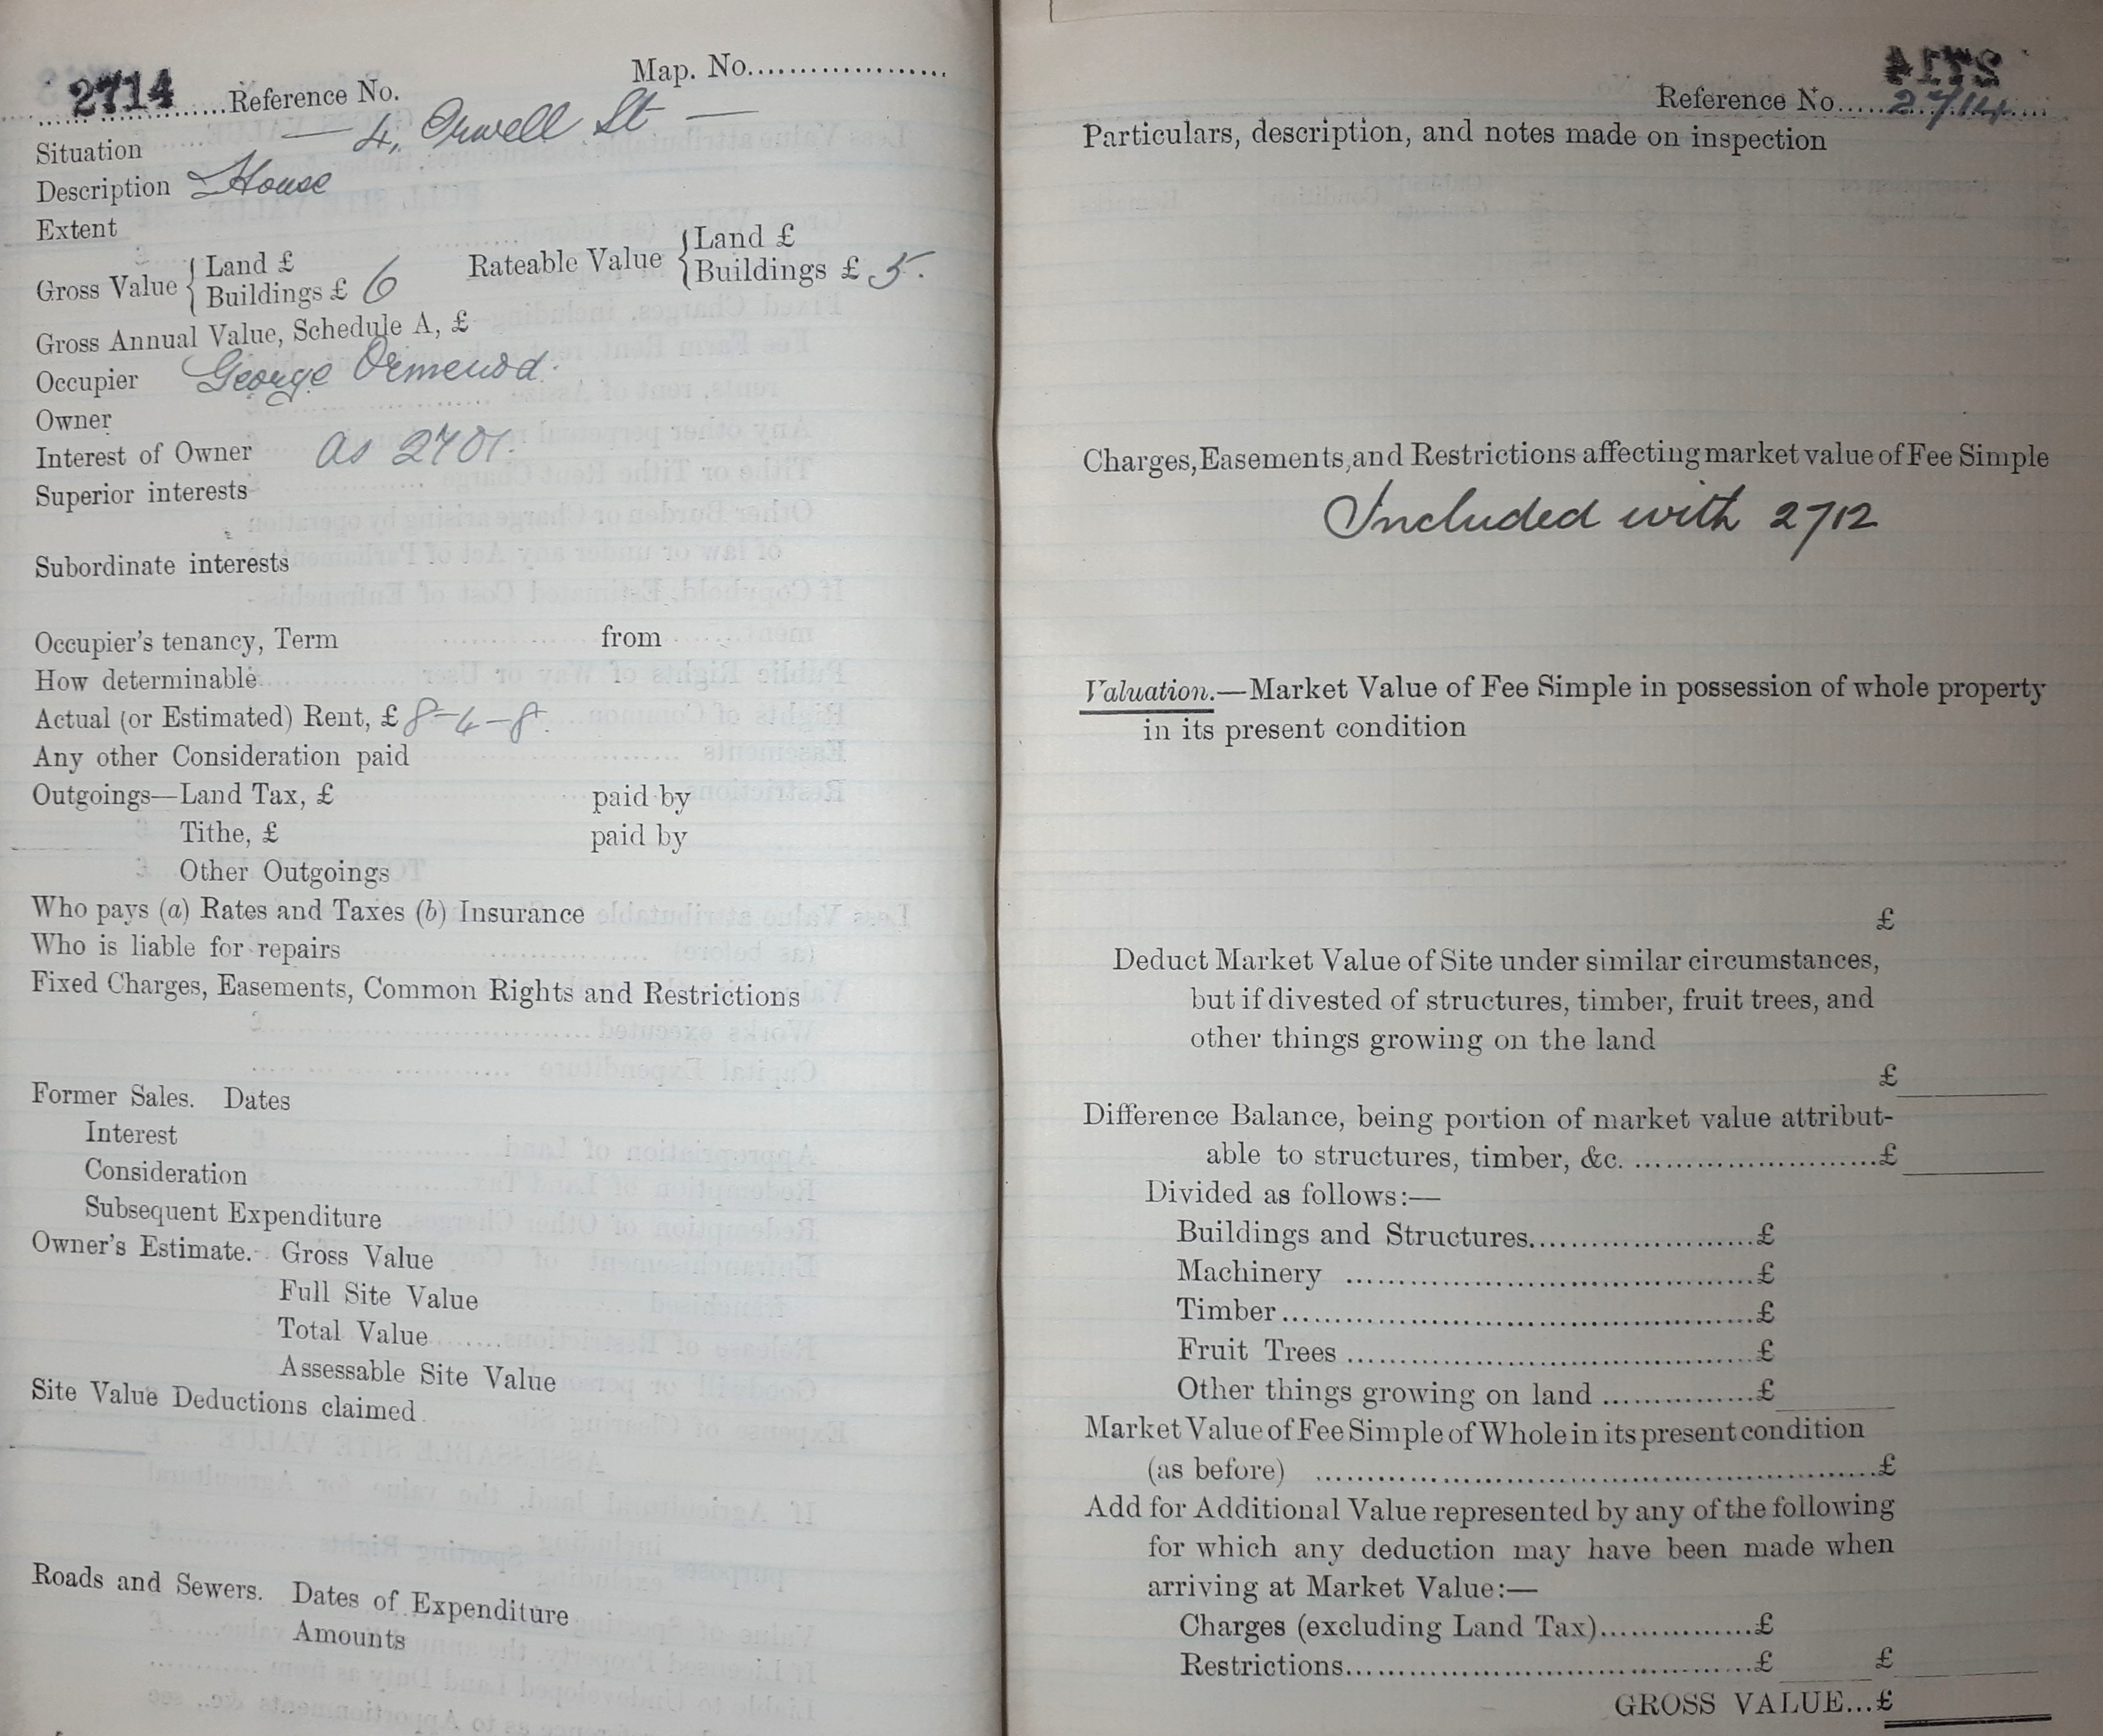 Map. No....................
2714 ......Reference No.
Situation — 4, Orwell St —
Description House
Extent
Gross Value { Land £
Buildings £ 6
Rateable Value { Land £
Buildings £ 5.
Gross Annual Value, Schedule A, £
Occupier George Ormerod.
Owner
Interest of Owner as 2701.
Superior interests
Subordinate interests
Occupier's tenancy, Term from
How determinable
Actual (or Estimated) Rent, £ 8-4-8.
Any other Consideration paid
Outgoings—Land Tax, £ paid by
Tithe, £ paid by
Other Outgoings
Who pays (a) Rates and Taxes (b) Insurance
Who is liable for repairs
Fixed Charges, Easements, Common Rights and Restrictions
Former Sales. Dates
Interest
Consideration
Subsequent Expenditure
Owner's Estimate. Gross Value
Full Site Value
Total Value
Assessable Site Value
Site Value Deductions claimed
Roads and Sewers. Dates of Expenditure
Amounts
2714
Reference No.....2714....
Particulars, description, and notes made on inspection
Charges, Easements, and Restrictions affecting market value of Fee Simple
Included with 2712
Valuation.—Market Value of Fee Simple in possession of whole property
in its present condition
£
Deduct Market Value of Site under similar circumstances,
but if divested of structures, timber, fruit trees, and
other things growing on the land
£
Difference Balance, being portion of market value attribut-
able to structures, timber, &c. ..........................£
Divided as follows:—
Buildings and Structures........................£
Machinery ............................................£
Timber..................................................£
Fruit Trees ...........................................£
Other things growing on land ................£
Market Value of Fee Simple of Whole in its present condition
(as before) ............................................................£
Add for Additional Value represented by any of the following
for which any deduction may have been made when
arriving at Market Value:—
Charges (excluding Land Tax)................£
Restrictions...........................................£ £
GROSS VALUE...£